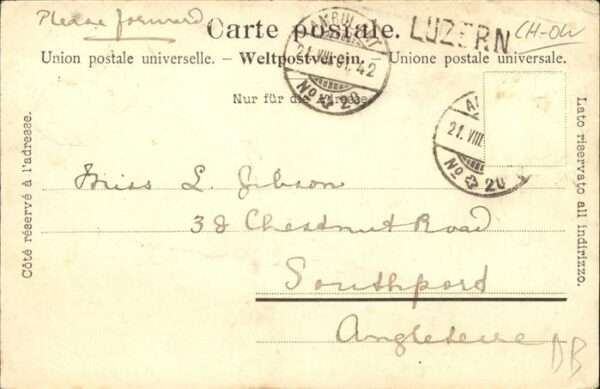 Please forward
Carte postale.
LUZERN
CH-OW
Union postale universelle. – Weltpostverein. – Unione postale universale.
AMBULANT
21. VIII. 01. 42
No 20
Nur für die Adresse
21. VIII
No 20
Côté réservé à l'adresse.
Lato riservato all indirizzo.
Miss L. Gibson
38 Chestnut Road
Southport
Angleterre
DB